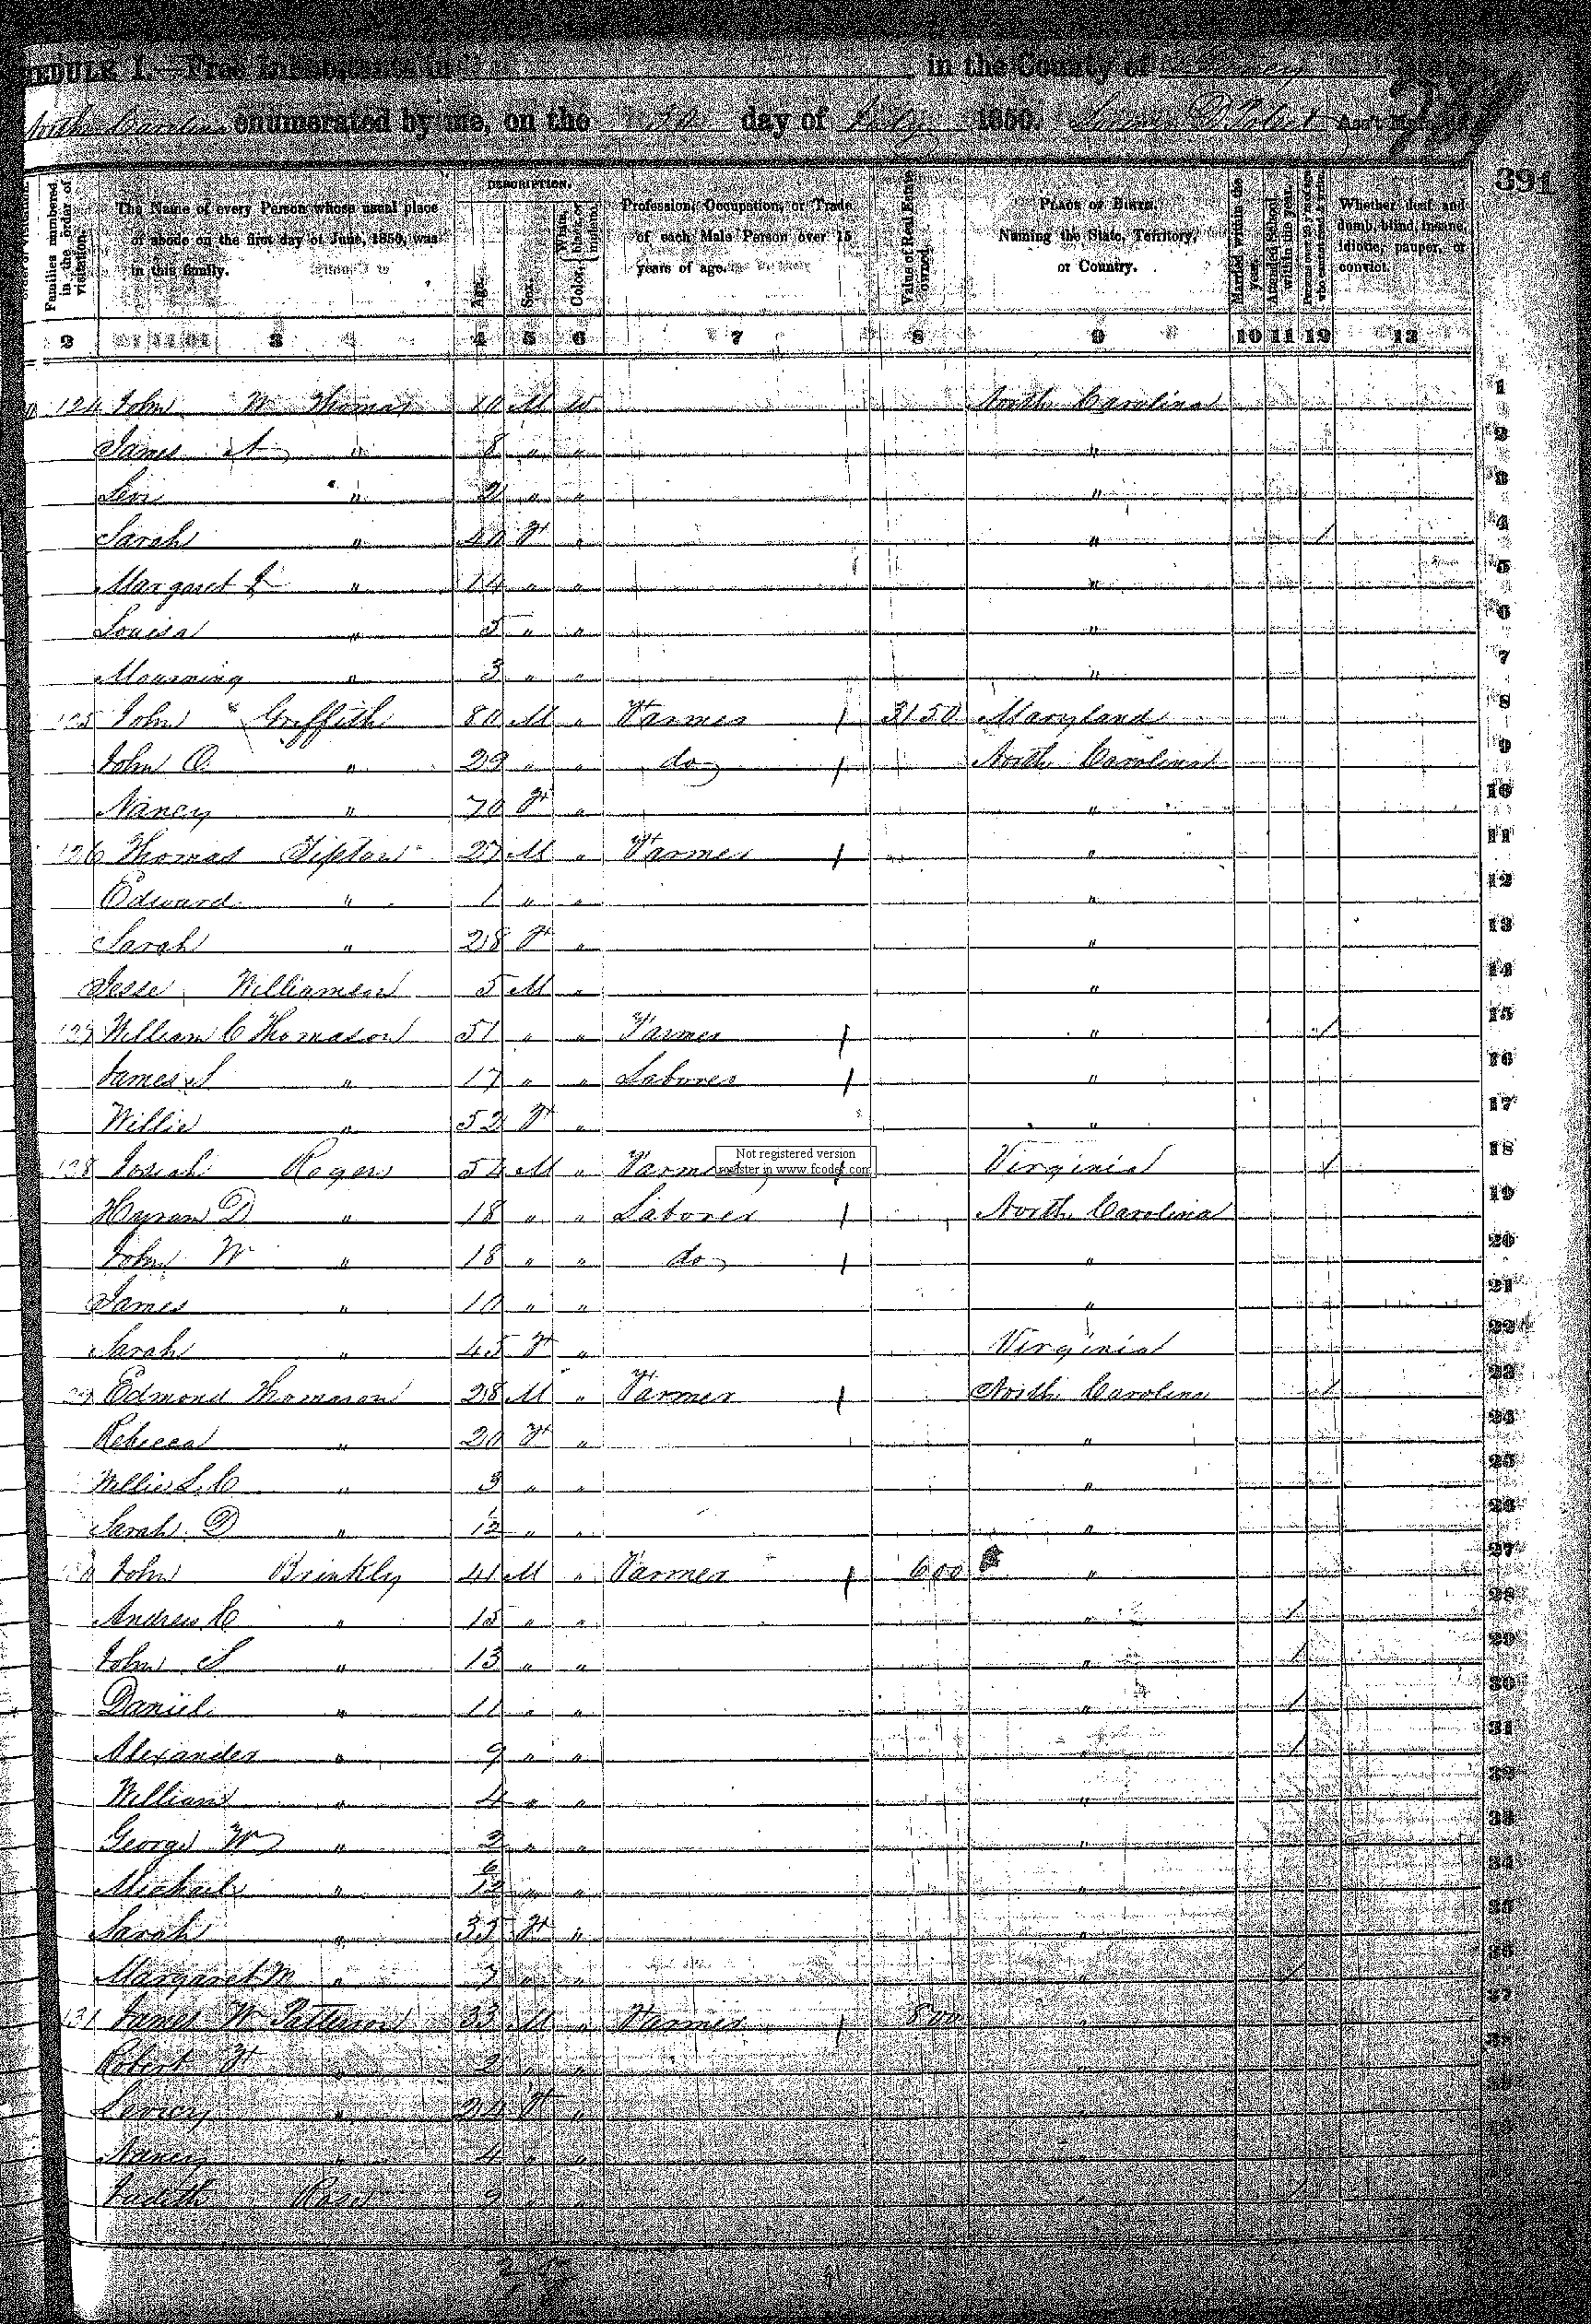 EDULE I.—Free Inhabitants in in the County of
North Carolina enumerated by me, on the day of July 1850. Ass't
391
Families numbered in the order of visitation.
The Name of every Person whose usual place of abode on the first day of June, 1850, was in this family.
DESCRIPTION.
Age.
Sex.
Color, { White, black, or mulatto.
Profession, Occupation, or Trade of each Male Person over 15 years of age.
Value of Real Estate owned.
PLACE OF BIRTH. Naming the State, Territory, or Country.
Married within the year.
Attended School within the year.
Persons over 20 y'rs of age who cannot read & write.
Whether deaf and dumb, blind, insane, idiotic, pauper, or convict.
2 3 4 5 6 7 8 9 10 11 12 13
124 John W Thomas 10 M W North Carolina 1
James A " 8 " " " 2
Levi " 2 " " " 3
Sarah " 40 F " " / 4
Margaret " 14 " " " 5
Louisa " 5 " " " 6
Mourning " 3 " " " 7
125 John Griffith 80 M " Farmer 3150 Maryland 8
John O. " 29 " " do North Carolina 9
Nancy " 70 F " " 10
126 Thomas Tipton 27 M " Farmer " 11
Edward " 1 " " " 12
Sarah " 28 F " " 13
Jesse Williamson 5 M " " 14
127 William C Thomason 51 " " Farmer " / 15
James S " 17 " " Laborer " 16
Willie " 52 F " " 17
128 Josiah Rogers 54 M " Farmer Virginia / 18
Not registered version
register in www.fcoder.com
Hyram D " 18 " " Laborer North Carolina 19
John W " 18 " " do " 20
James " 10 " " " 21
Sarah " 45 F " Virginia 22
Edmond Thomason 28 M " Farmer North Carolina / 23
Rebecca " 20 F " " 24
Willie L. C " 3 " " " 25
Sarah D " 1/12 " " " 26
John Brinkly 41 M " Farmer 600 " 27
Andrew C " 15 " " " / 28
John S " 13 " " " / 29
Daniel " 11 " " " / 30
Alexander " 9 " " " / 31
William " 4 " " " 32
George W " 2 " " " 33
Michael " 6/12 " " " 34
Sarah " 35 F " " 35
Margaret M " 7 " " " / 36
131 James W Patterson 33 M " Farmer 800 " 37
Robert F " 2 " " " 38
" 24 F " "
Nancy " 4 " " "
Judith 9 " " " /